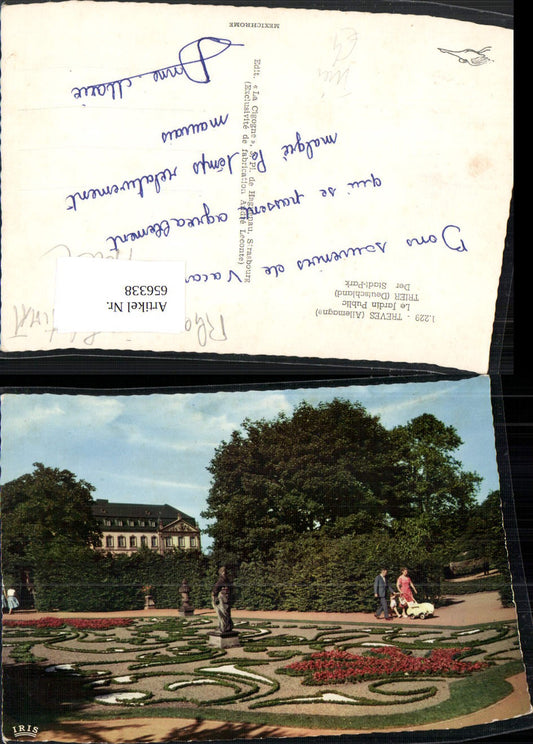 1.229 - TREVES (Allemagne)
Le Jardin Public
TRIER (Deutschland)
Der Stadt-Park
Bons souvenirs de
qui se passent agréablement
malgré le temps relativement
mauvais
Anne Marie
Edit. « La Cigogne », Pl. de Haguenau, Strasbourg
(Exclusivité de fabrication André Leconte)
MEXICHROME
Artikel Nr.
656338
IRIS